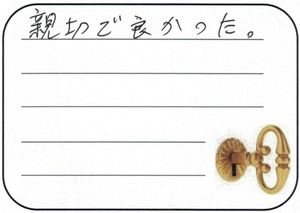 親切で良かった。